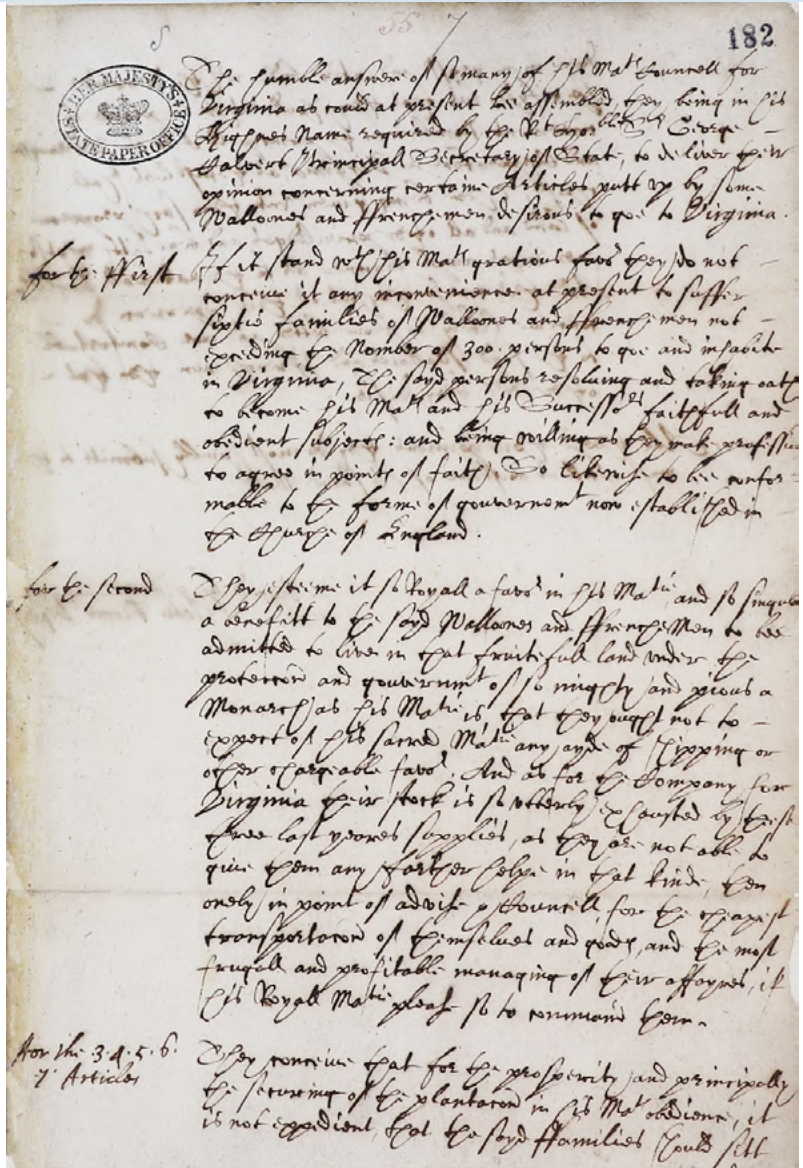 55 7
182
HER MAJESTY'S
STATE PAPER OFFICE
The humble answere of so many of his Ma^ts Councell for
Virginia as could at present bee assembled, they being in his
Highnes Name required by the R^t Hono^ble S^r George
Calvert Principall Secretary of State, to deliver their
opinion concerning certaine Articles putt vp by some
Walloones and ffrenchemen desirous to goe to Virginia.
for the ffirst
If it stand w^th his Ma^ts gratious favo^r they do not
conceiue it any inconvenience at present to suffer
sixtie families of Walloones and ffrenchemen not
exceeding the Nomber of 300 persons to goe and inhabite
in Virginia, The sayd persons resolving and taking oath
to become his Ma^ts and his Successo^rs faithfull and
obedient subjects: and being willing as they make profession
to agree in points of faith, So likewise to bee confor=
mable to the forme of gouvernem^t now established in
the Churche of England.
for the second
They esteeme it so Royall a favo^r in his Ma^tie and so singular
a benefitt to the sayd Walloones and ffrencheMen to bee
admitted to live in that fruitefull land vnder the
protection and gouvernm^t of so mighty and pious a
Monarch as his Ma^tie is, that they ought not to
expect of his sacred Ma^tie any ayde of shipping or
other chargeable favo^r. And as for the Company for
Virginia their stock is so vtterly exhausted by these
three last yeares supplies, as they are not able to
give them any ffarther helpe in that kinde, then
onely in point of advise & Councell, for the cheapest
transportacon of themselves and goods, and the most
frugall and profitable managing of their affayres, if
his Royall Ma^tie please so to command them.
For the 3. 4. 5. 6.
7 Articles
They conceiue that for the prosperity and principally
the securing of the plantacon in his Ma^ts obedience, it
is not expedient, that the sayd ffamilies should sett